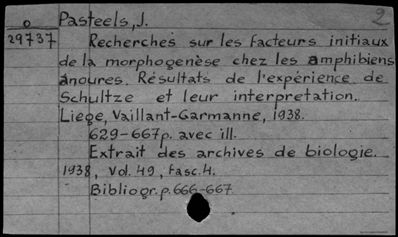 2
o Pasteels, J.
29737 Recherches sur les facteurs initiaux
de la morphogenèse chez les amphibiens
anoures. Résultats de l'expérience de
Schultze et leur interpretation.
Liege, Vaillant-Garmanne, 1938.
629-667p. avec ill.
Extrait des archives de biologie.
1938, Vol. 49, Fasc. 4.
Bibliogr. p. 666-667